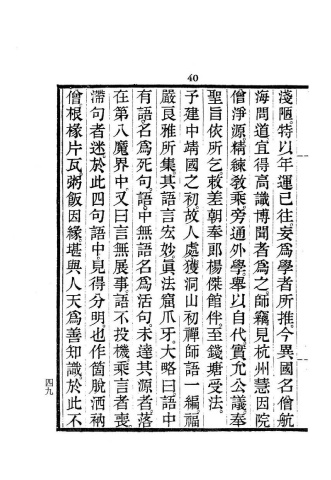 40
淺陋特以年運已往妄爲學者所推今異國名僧航
海問道宜得高識博聞者爲之師竊見杭州慧因院
僧淨源精練敎乘旁通外學舉以自代實允公議奉
聖旨依所乞敕差朝奉郞楊傑館伴至錢塘受法
予建中靖國之初故人處獲洞山初禪師語一編福
嚴良雅所集其語言宏妙眞法窟爪牙大略曰語中
有語名爲死句語中無語名爲活句未達其源者落
在第八魔界中又曰言無展事語不投機乘言者喪
滯句者迷於此四句語中見得分明也作箇脫洒衲
僧根椽片瓦粥飯因緣堪與人天爲善知識於此不
四九